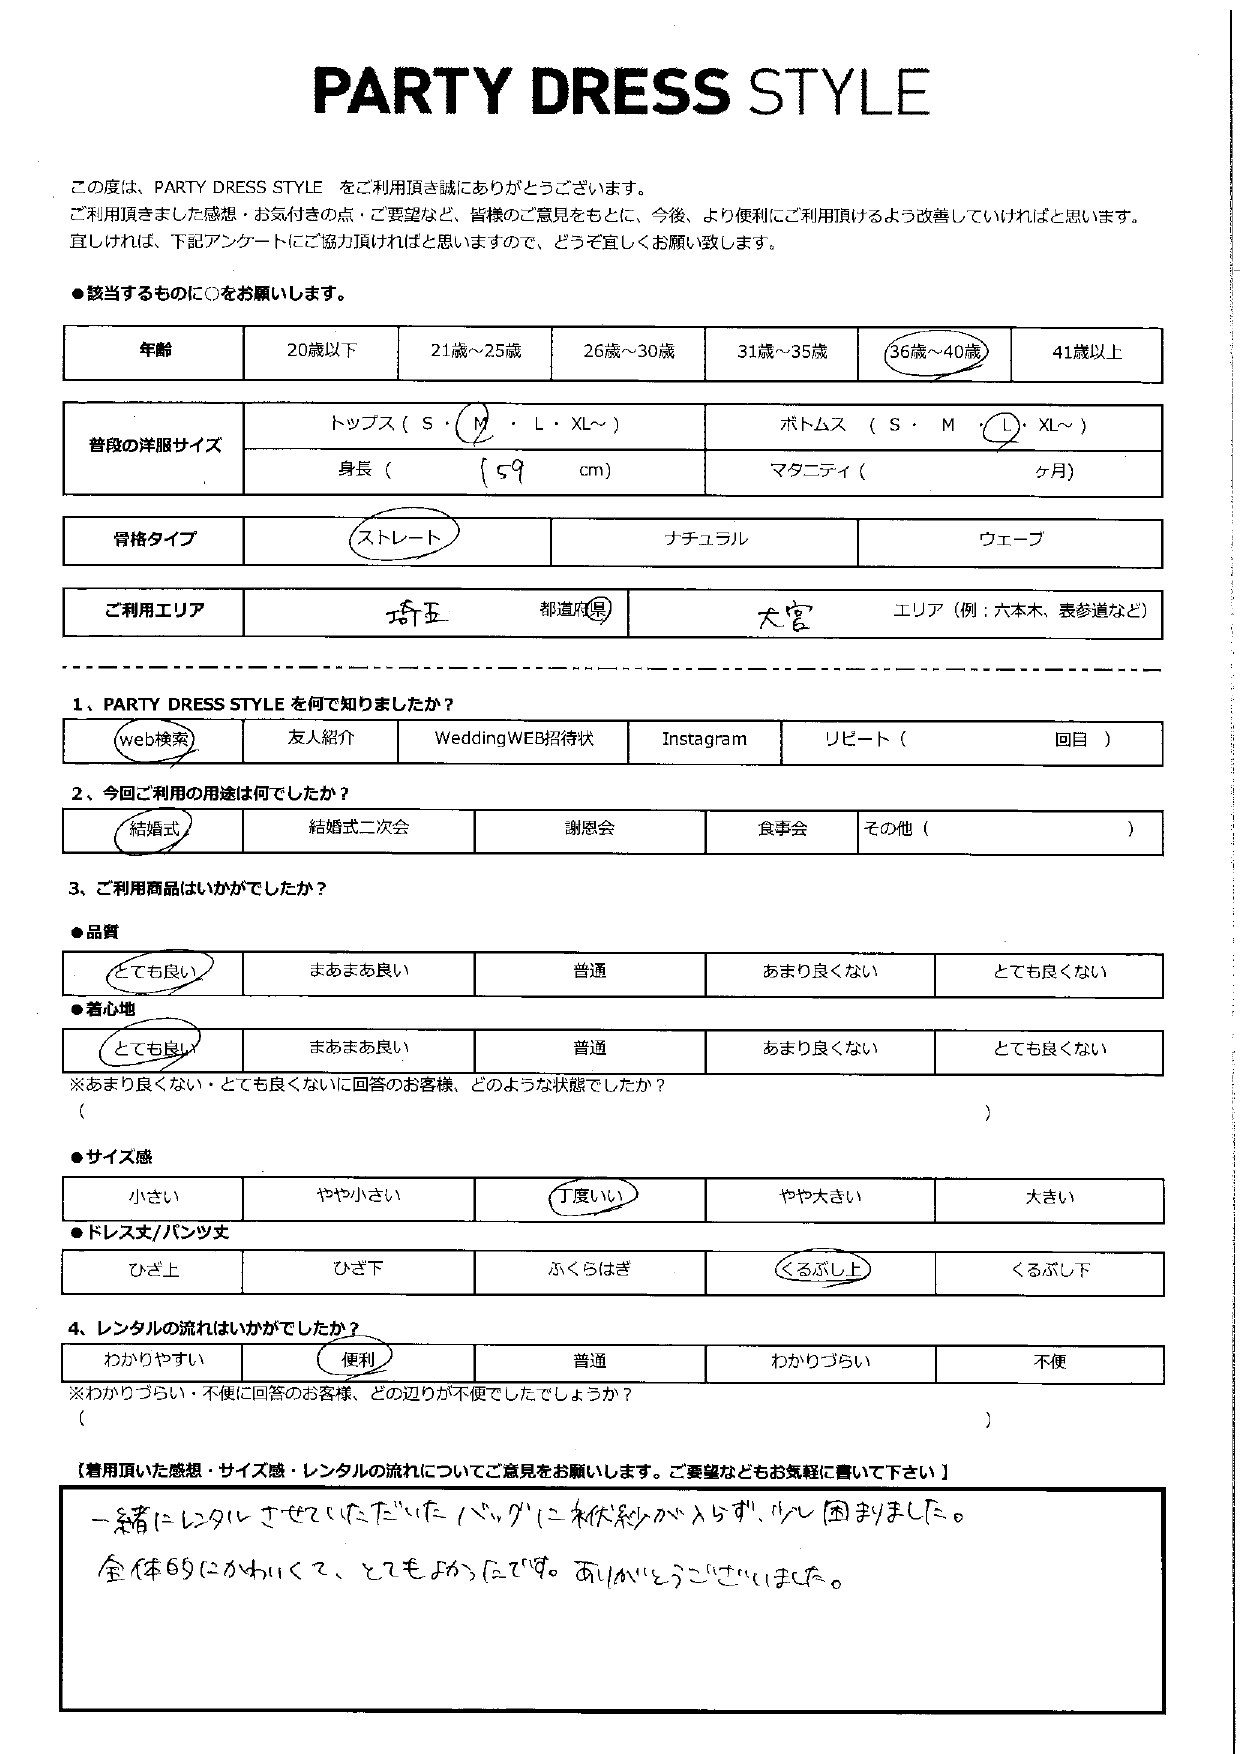 PARTY DRESS STYLE
この度は、PARTY DRESS STYLE をご利用頂き誠にありがとうございます。
ご利用頂きました感想・お気付きの点・ご要望など、皆様のご意見をもとに、今後、より便利にご利用頂けるよう改善していければと思います。
宜しければ、下記アンケートにご協力頂ければと思いますので、どうぞ宜しくお願い致します。
●該当するものに○をお願いします。
年齢 20歳以下 21歳～25歳 26歳～30歳 31歳～35歳 36歳～40歳 41歳以上
普段の洋服サイズ トップス ( S ・ M ・ L ・ XL～ ) ボトムス ( S ・ M ・ L ・ XL～ )
身長 ( 159 cm) マタニティ ( ヶ月)
骨格タイプ ストレート ナチュラル ウェーブ
ご利用エリア 埼玉 都道府県 大宮 エリア（例：六本木、表参道など）
1、PARTY DRESS STYLE を何で知りましたか？
web検索 友人紹介 WeddingWEB招待状 Instagram リピート ( 回目 )
2、今回ご利用の用途は何でしたか？
結婚式 結婚式二次会 謝恩会 食事会 その他 ( )
3、ご利用商品はいかがでしたか？
●品質
とても良い まあまあ良い 普通 あまり良くない とても良くない
●着心地
とても良い まあまあ良い 普通 あまり良くない とても良くない
※あまり良くない・とても良くないに回答のお客様、どのような状態でしたか？
( )
●サイズ感
小さい やや小さい 丁度いい やや大きい 大きい
●ドレス丈/パンツ丈
ひざ上 ひざ下 ふくらはぎ くるぶし上 くるぶし下
4、レンタルの流れはいかがでしたか？
わかりやすい 便利 普通 わかりづらい 不便
※わかりづらい・不便に回答のお客様、どの辺りが不便でしたでしょうか？
( )
【着用頂いた感想・サイズ感・レンタルの流れについてご意見をお願いします。ご要望などもお気軽に書いて下さい 】
一緒にレンタルさせていただいたバッグに袱紗が入らず、少し困りました。
全体的にかわいくて、とてもよかったです。ありがとうございました。